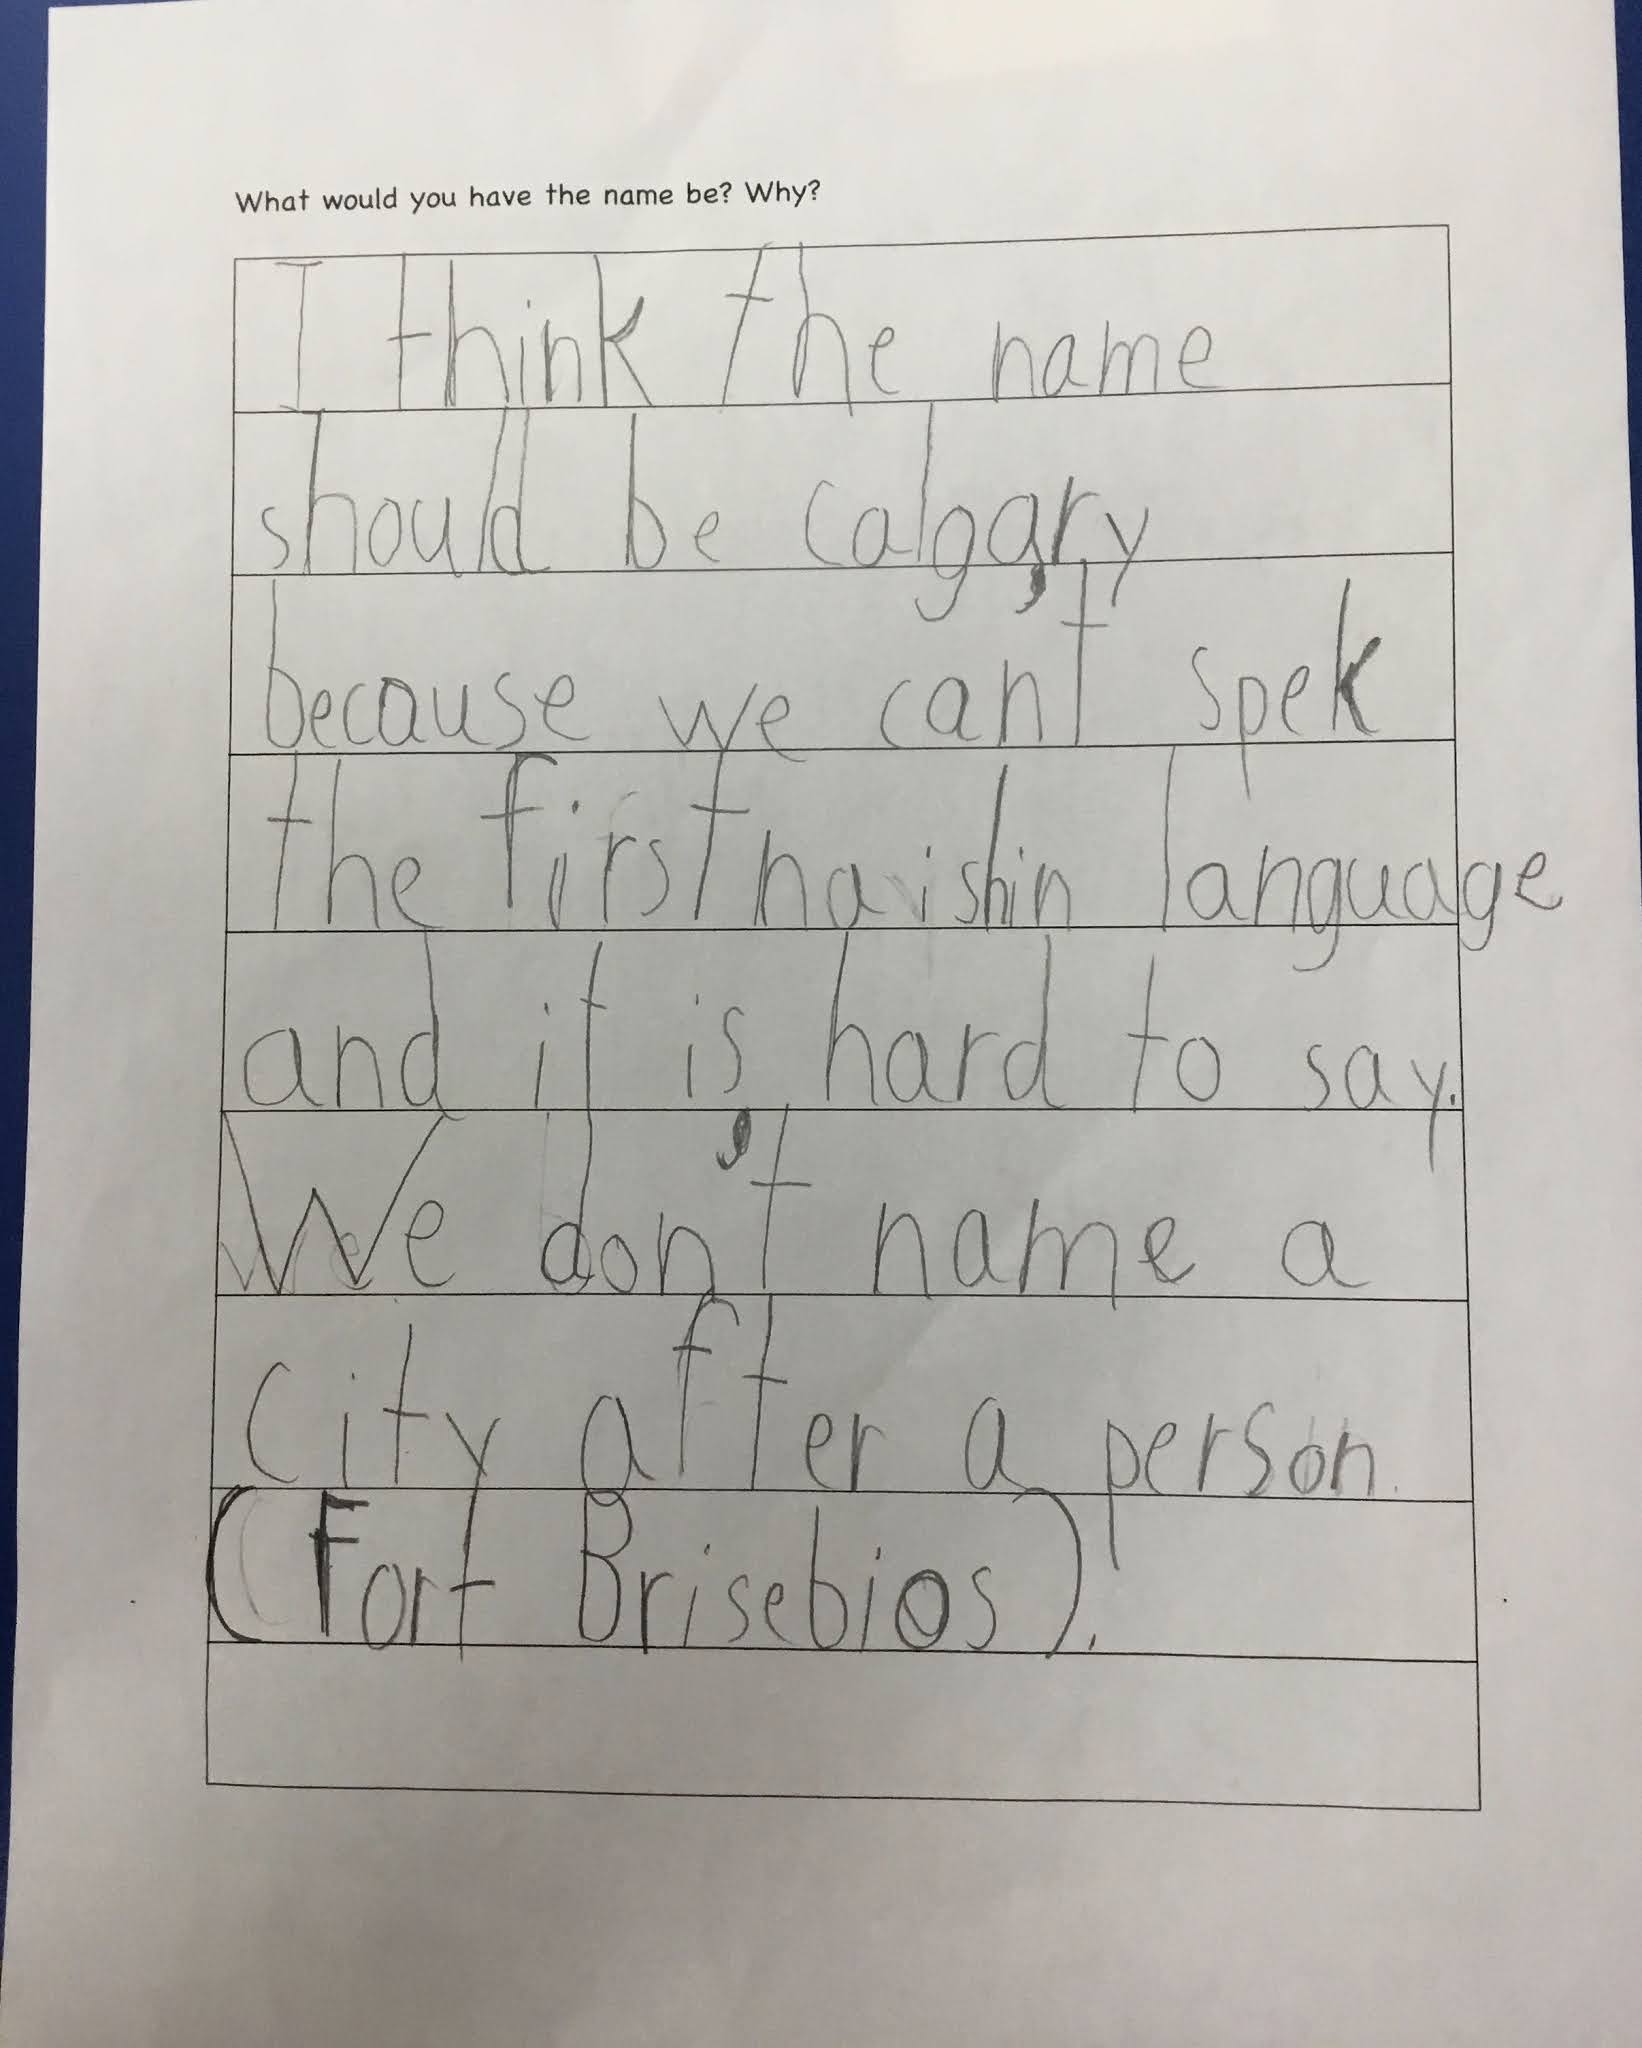 What would you have the name be? Why?
I think the name
should be calgary
because we can't spek
the first naishin language
and it is hard to say.
We don't name a
city after a person.
(Fort Brisebios).